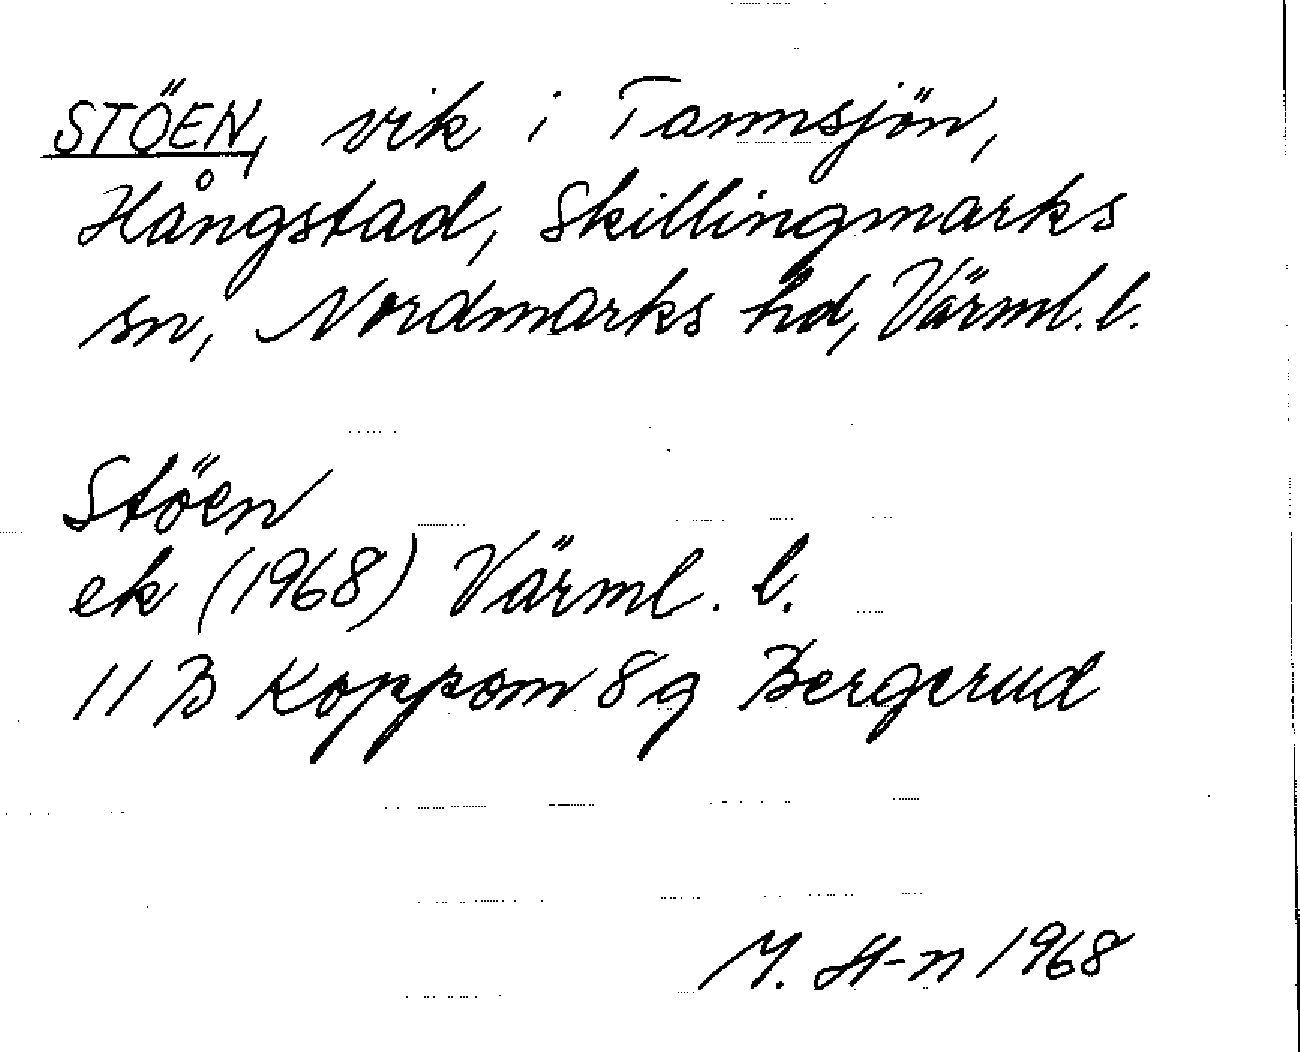 STÖEN, vik i Tannsjön,
Hångstad, Skillingmarks
sn, Nordmarks hd, Värml. l.
Stöen
ek (1968) Värml. l.
11 B Koppom 8g Bergerud
M. H-n 1968